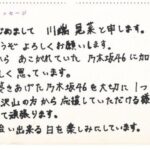 ッセージ
じめまして 川﨑 晃菜と申します。
うぞ よろしくお願いします。
から あこがれていた 乃木坂46に加
しく思っています。
きあげた 乃木坂46を大切に 1つ
沢山の方から応援していただける様
て頑張ります。
会い出来る日を楽しみにしています。